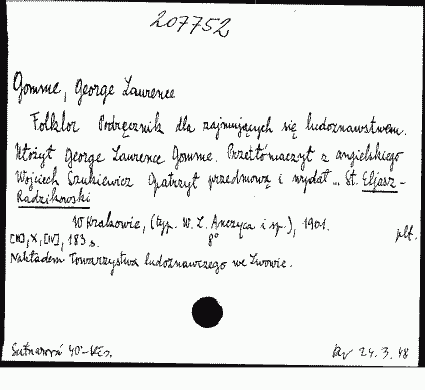 207752
Gomme, George Laurence
Folklor Podręcznik dla zajmujących się ludoznawstwem.
Ułożył George Laurence Gomme. Przetłómaczył z angielskiego
Wojciech Szukiewicz Opatrzył przedmową i wydał ... St. Eljasz-
Radzikowski
W Krakowie, (typ. W. L. Anczyca i sp.), 1901. płt.
X, [IV], 183 s. 8°
Nakładem Towarzystwa ludoznawczego we Lwowie.
24.3.48